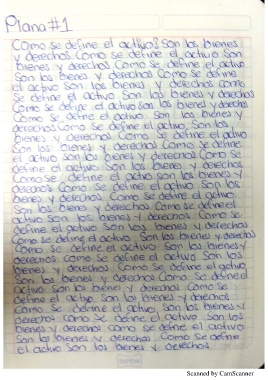 Plana #1
Como se define el activo? Son los bienes
y derechos Como se define el activo Son
bienes y derechos Como se define el activo
Son los bienes y derechos Como se define
el activo Son los bienes y derechos Como
se define el activo son los bienes y derechos
Como se define el activo son los bienes y derechos
Como se define el activo Son los bienes y
derechos como se define el activo. Son los
bienes y derechos Como se define el activo
Son los bienes y derechos Como se define
el activo son los bienes y derechos Como se
define el activo Son los bienes y derechos
Como se define el activo son los bienes y
derechos Como se define el activo Son los
bienes y derechos Como se define el activo
Son los bienes y derechos Como se define el
activo Son los bienes y derechos Como se
define el activo Son los bienes y derechos
Como se define el activo. Son los bienes y derechos
Como se define el activo Son los bienes y
derechos Como se define el activo Son los
bienes y derechos. Como se define el activo
Son los bienes y derechos Como se define el
activo Son los bienes y derechos Como se
define el activo Son los bienes y derechos
Como se define el activo son los bienes y
derechos Como se define el activo Son los
bienes y derechos Como se define el activo
Son los bienes y derechos Como se define
el activo Son los bienes y derechos
Scanned by CamScanner